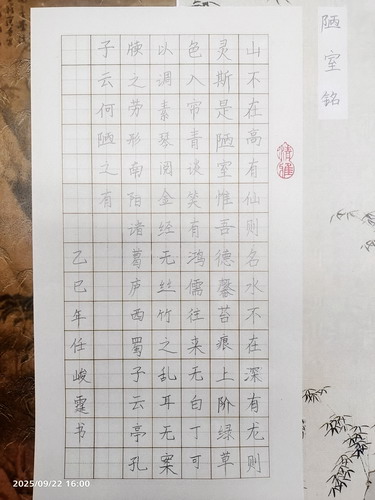 陋室铭
山不在高有仙则名水不在深有龙则
灵斯是陋室惟吾德馨苔痕上阶绿草
色入帘青谈笑有鸿儒往来无白丁可
以调素琴阅金经无丝竹之乱耳无案
牍之劳形南阳诸葛庐西蜀子云亭孔
子云何陋之有
乙巳年任峻霆书
2025/09/22 16:00